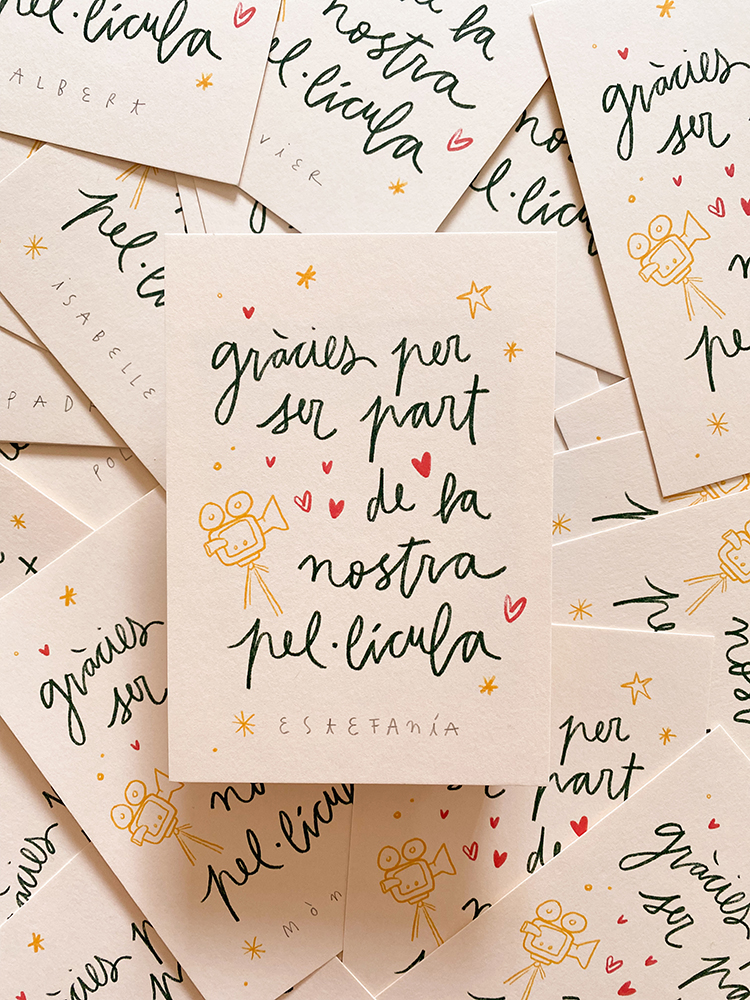 pel·lícula
ALBERT
nostra
pel·lícula
gràcies
ser
pel·lícula
ISABELLE
gràcies per
ser part
de la
nostra
pel·lícula
ESTEFANÍA
gràcies
ser
pel·lícula
per
part
gràcies
ser